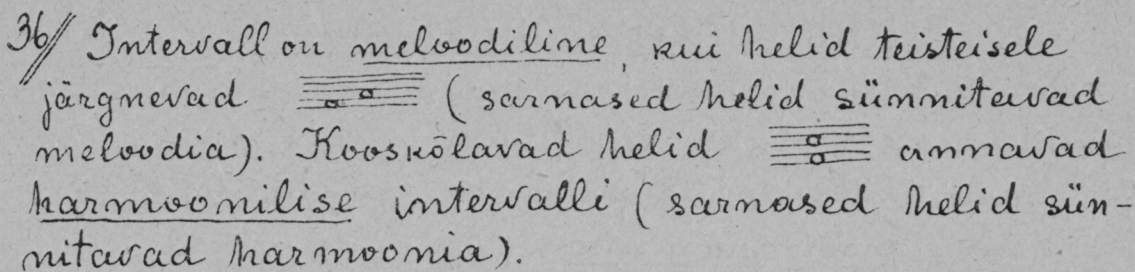 36// Intervall on meloodiline, kui helid teisteisele
järgnevad (sarnased helid sünnitavad
meloodia). Kooskõlavad helid annavad
harmoonilise intervalli (sarnased helid sün-
nitavad harmoonia).